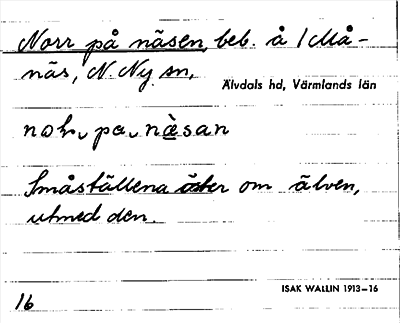 Norr på näsen, beb. å 1 Må-
näs, N. Ny sn,
Älvdals hd, Värmlands län
pa næsan
Småställena öster om älven,
utmed den.
ISAK WALLIN 1913–16
16